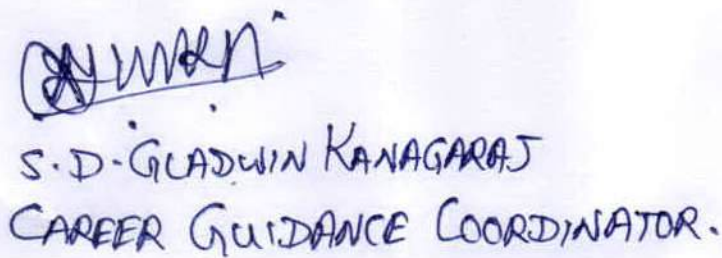 S.D. GLADWIN KANAGARAJ
CAREER GUIDANCE COORDINATOR.